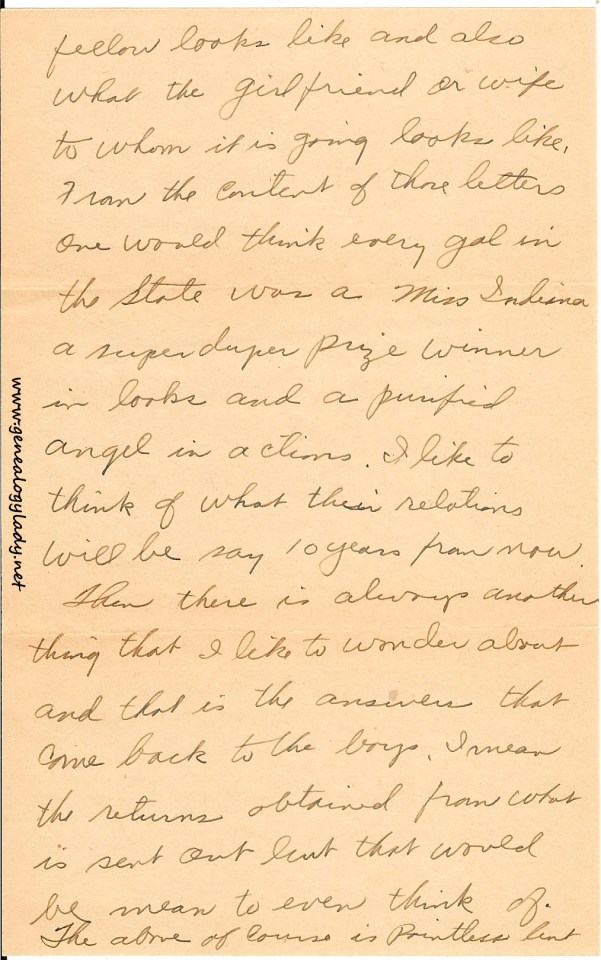 fellow looks like and also
what the girl friend or wife
to whom it is going looks like.
From the content of those letters
one would think every gal in
the State was a Miss Indiana
a super duper prize winner
in looks and a purified
angel in actions. I like to
think of what their relations
will be say 10 years from now.
Then there is always another
thing that I like to wonder about
and that is the answers that
come back to the boys. I mean
the returns obtained from what
is sent out but that would
be mean to even think of.
The above of course is Pointless but
www.genealogylady.net